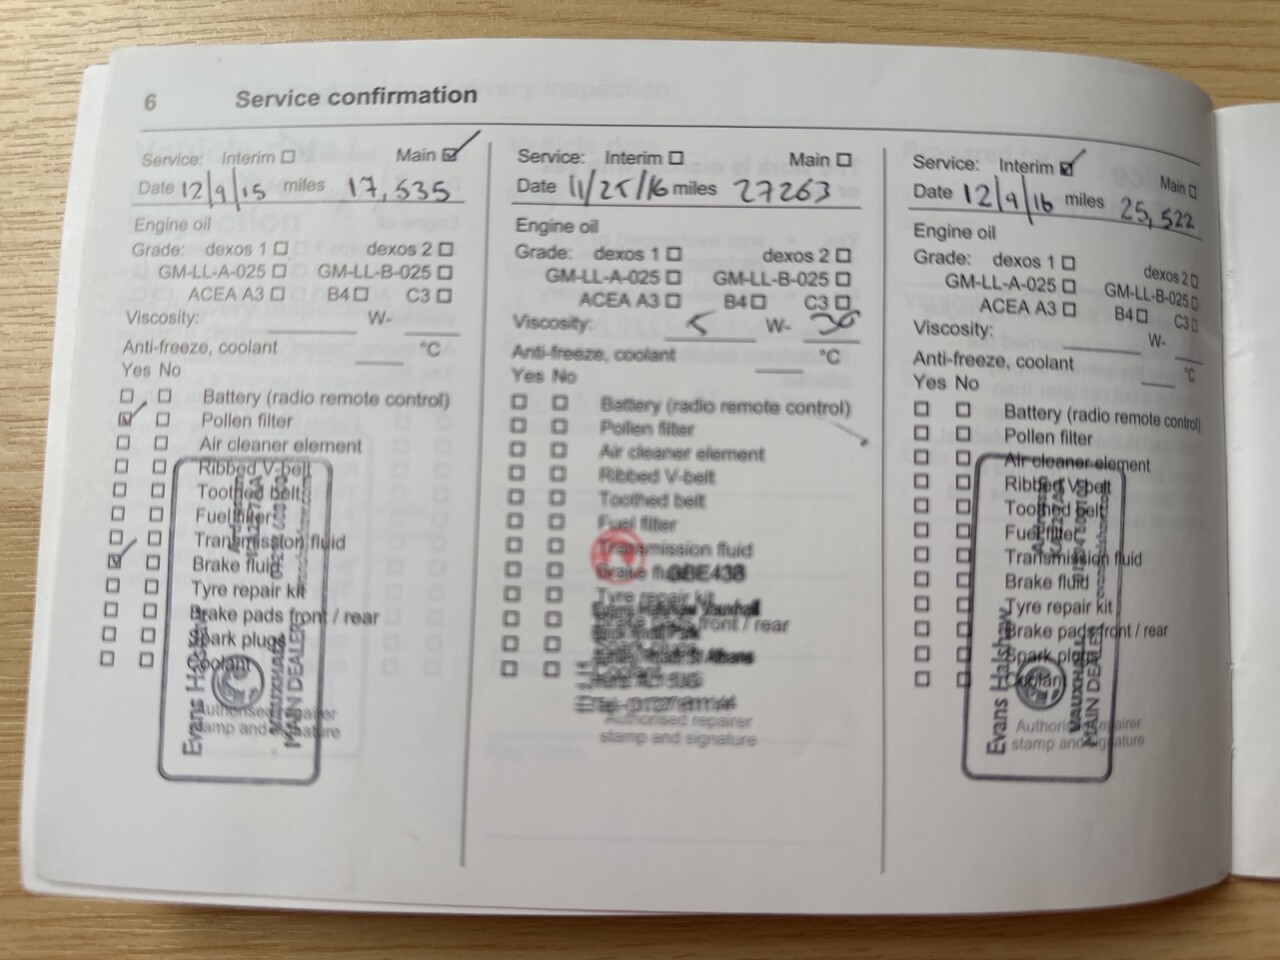 6 Service confirmation
Service: Interim ☐ Main ☑
Date 12/9/15 miles 17,535
Engine oil
Grade: dexos 1 ☐ dexos 2 ☐
GM-LL-A-025 ☐ GM-LL-B-025 ☐
ACEA A3 ☐ B4 ☐ C3 ☐
Viscosity: W-
Anti-freeze, coolant °C
Yes No
☐ ☐ Battery (radio remote control)
☑ ☐ Pollen filter
☐ ☐ Air cleaner element
☐ ☐ Ribbed V-belt
☐ ☐ Toothed belt
☐ ☐ Fuel filter
☐ ☐ Transmission fluid
☑ ☐ Brake fluid
☐ ☐ Tyre repair kit
☐ ☐ Brake pads front / rear
☐ ☐ Spark plugs
☐ ☐ Coolant
Authorised repairer
stamp and signature
Evans Halshaw
VAUXHALL
MAIN DEALER
Service: Interim ☐ Main ☐
Date 11/25/16 miles 27263
Engine oil
Grade: dexos 1 ☐ dexos 2 ☐
GM-LL-A-025 ☐ GM-LL-B-025 ☐
ACEA A3 ☐ B4 ☐ C3 ☐
Viscosity: 5 W- 30
Anti-freeze, coolant °C
Yes No
☐ ☐ Battery (radio remote control)
☐ ☐ Pollen filter
☐ ☐ Air cleaner element
☐ ☐ Ribbed V-belt
☐ ☐ Toothed belt
☐ ☐ Fuel filter
☐ ☐ Transmission fluid
☐ ☐ Brake fluid
☐ ☐ Tyre repair kit
☐ ☐ Brake pads front / rear
☐ ☐
☐ ☐
GBE438
Evans Halshaw Vauxhall
St Albans
Authorised repairer
stamp and signature
Service: Interim ☑ Main ☐
Date 12/9/16 miles 25,522
Engine oil
Grade: dexos 1 ☐ dexos 2 ☐
GM-LL-A-025 ☐ GM-LL-B-025 ☐
ACEA A3 ☐ B4 ☐ C3 ☐
Viscosity: W-
Anti-freeze, coolant °C
Yes No
☐ ☐ Battery (radio remote control)
☐ ☐ Pollen filter
☐ ☐ Air cleaner element
☐ ☐ Ribbed V-belt
☐ ☐ Toothed belt
☐ ☐ Fuel filter
☐ ☐ Transmission fluid
☐ ☐ Brake fluid
☐ ☐ Tyre repair kit
☐ ☐ Brake pads front / rear
☐ ☐ Spark plugs
☐ ☐ Coolant
Authorised repairer
stamp and signature
Evans Halshaw
VAUXHALL
MAIN DEALER